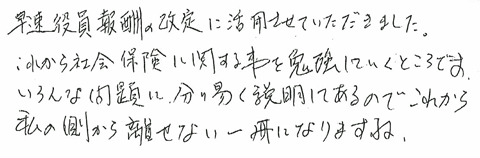 早速役員報酬の改定に活用させていただきました。
これから社会保険に関する事を勉強していくところです。
いろんな問題に、分り易く説明してあるのでこれから
私の側から離せない一冊になりますね。